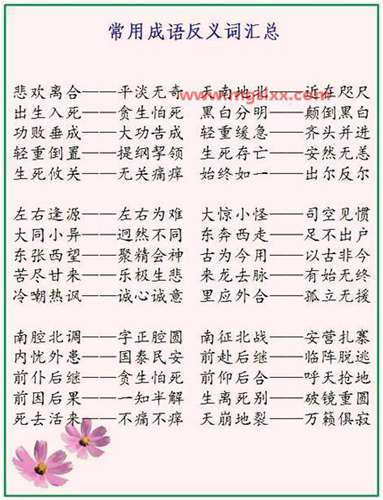 常用成语反义词汇总
www.mgtxx.com
悲欢离合——平淡无奇 天南地北——近在咫尺
出生入死——贪生怕死 黑白分明——颠倒黑白
功败垂成——大功告成 轻重缓急——齐头并进
轻重倒置——提纲挈领 生死存亡——安然无恙
生死攸关——无关痛痒 始终如一——出尔反尔
左右逢源——左右为难 大惊小怪——司空见惯
大同小异——迥然不同 东奔西走——足不出户
东张西望——聚精会神 古为今用——以古非今
苦尽甘来——乐极生悲 来龙去脉——有始无终
冷嘲热讽——诚心诚意 里应外合——孤立无援
南腔北调——字正腔圆 南征北战——安营扎寨
内忧外患——国泰民安 前赴后继——临阵脱逃
前仆后继——贪生怕死 前仰后合——呼天抢地
前因后果——一知半解 生离死别——破镜重圆
死去活来——不痛不痒 天崩地裂——万籁俱寂